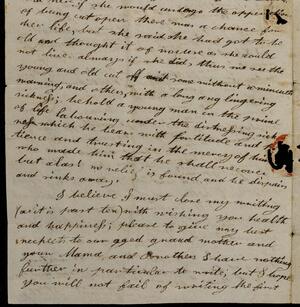 if she would undergo the operation
of being cut open there was a chance for
her life, but she said she had got to be
old and thought it of no use as she could
not live always if she did, thus we see the
young and old cut off some without a minute's
warning, and others, with a long and lingering
sickness; he hold a young man in the prime
of life labouring, under the distressing sick
ness which he bears with fortitude and pa
tience and trusting in the mercy of him
who made him that he shall recover
but alas! no relief is found and he despairs
and sinks away.
I believe I must close my writing
(as it is past ten) with wishing you health
and happiness; please to give my best
respects to our aged grand mother and
your Mamd, and brothers I have nothing
further in particular to write, but I hope
You will not fail of writing the first